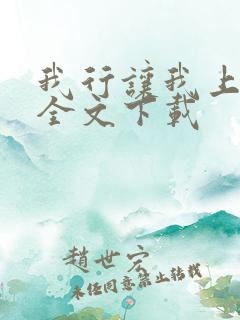 我行讓我上
全文下載
趙世宏
未經同意禁止转载